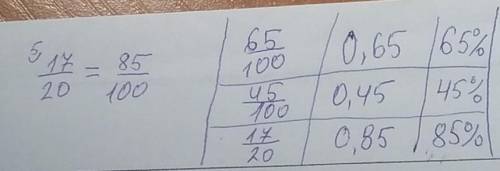 5 17/20 = 85/100
65/100 | 0,65 | 65%
45/100 | 0,45 | 45%
17/20 | 0,85 | 85%